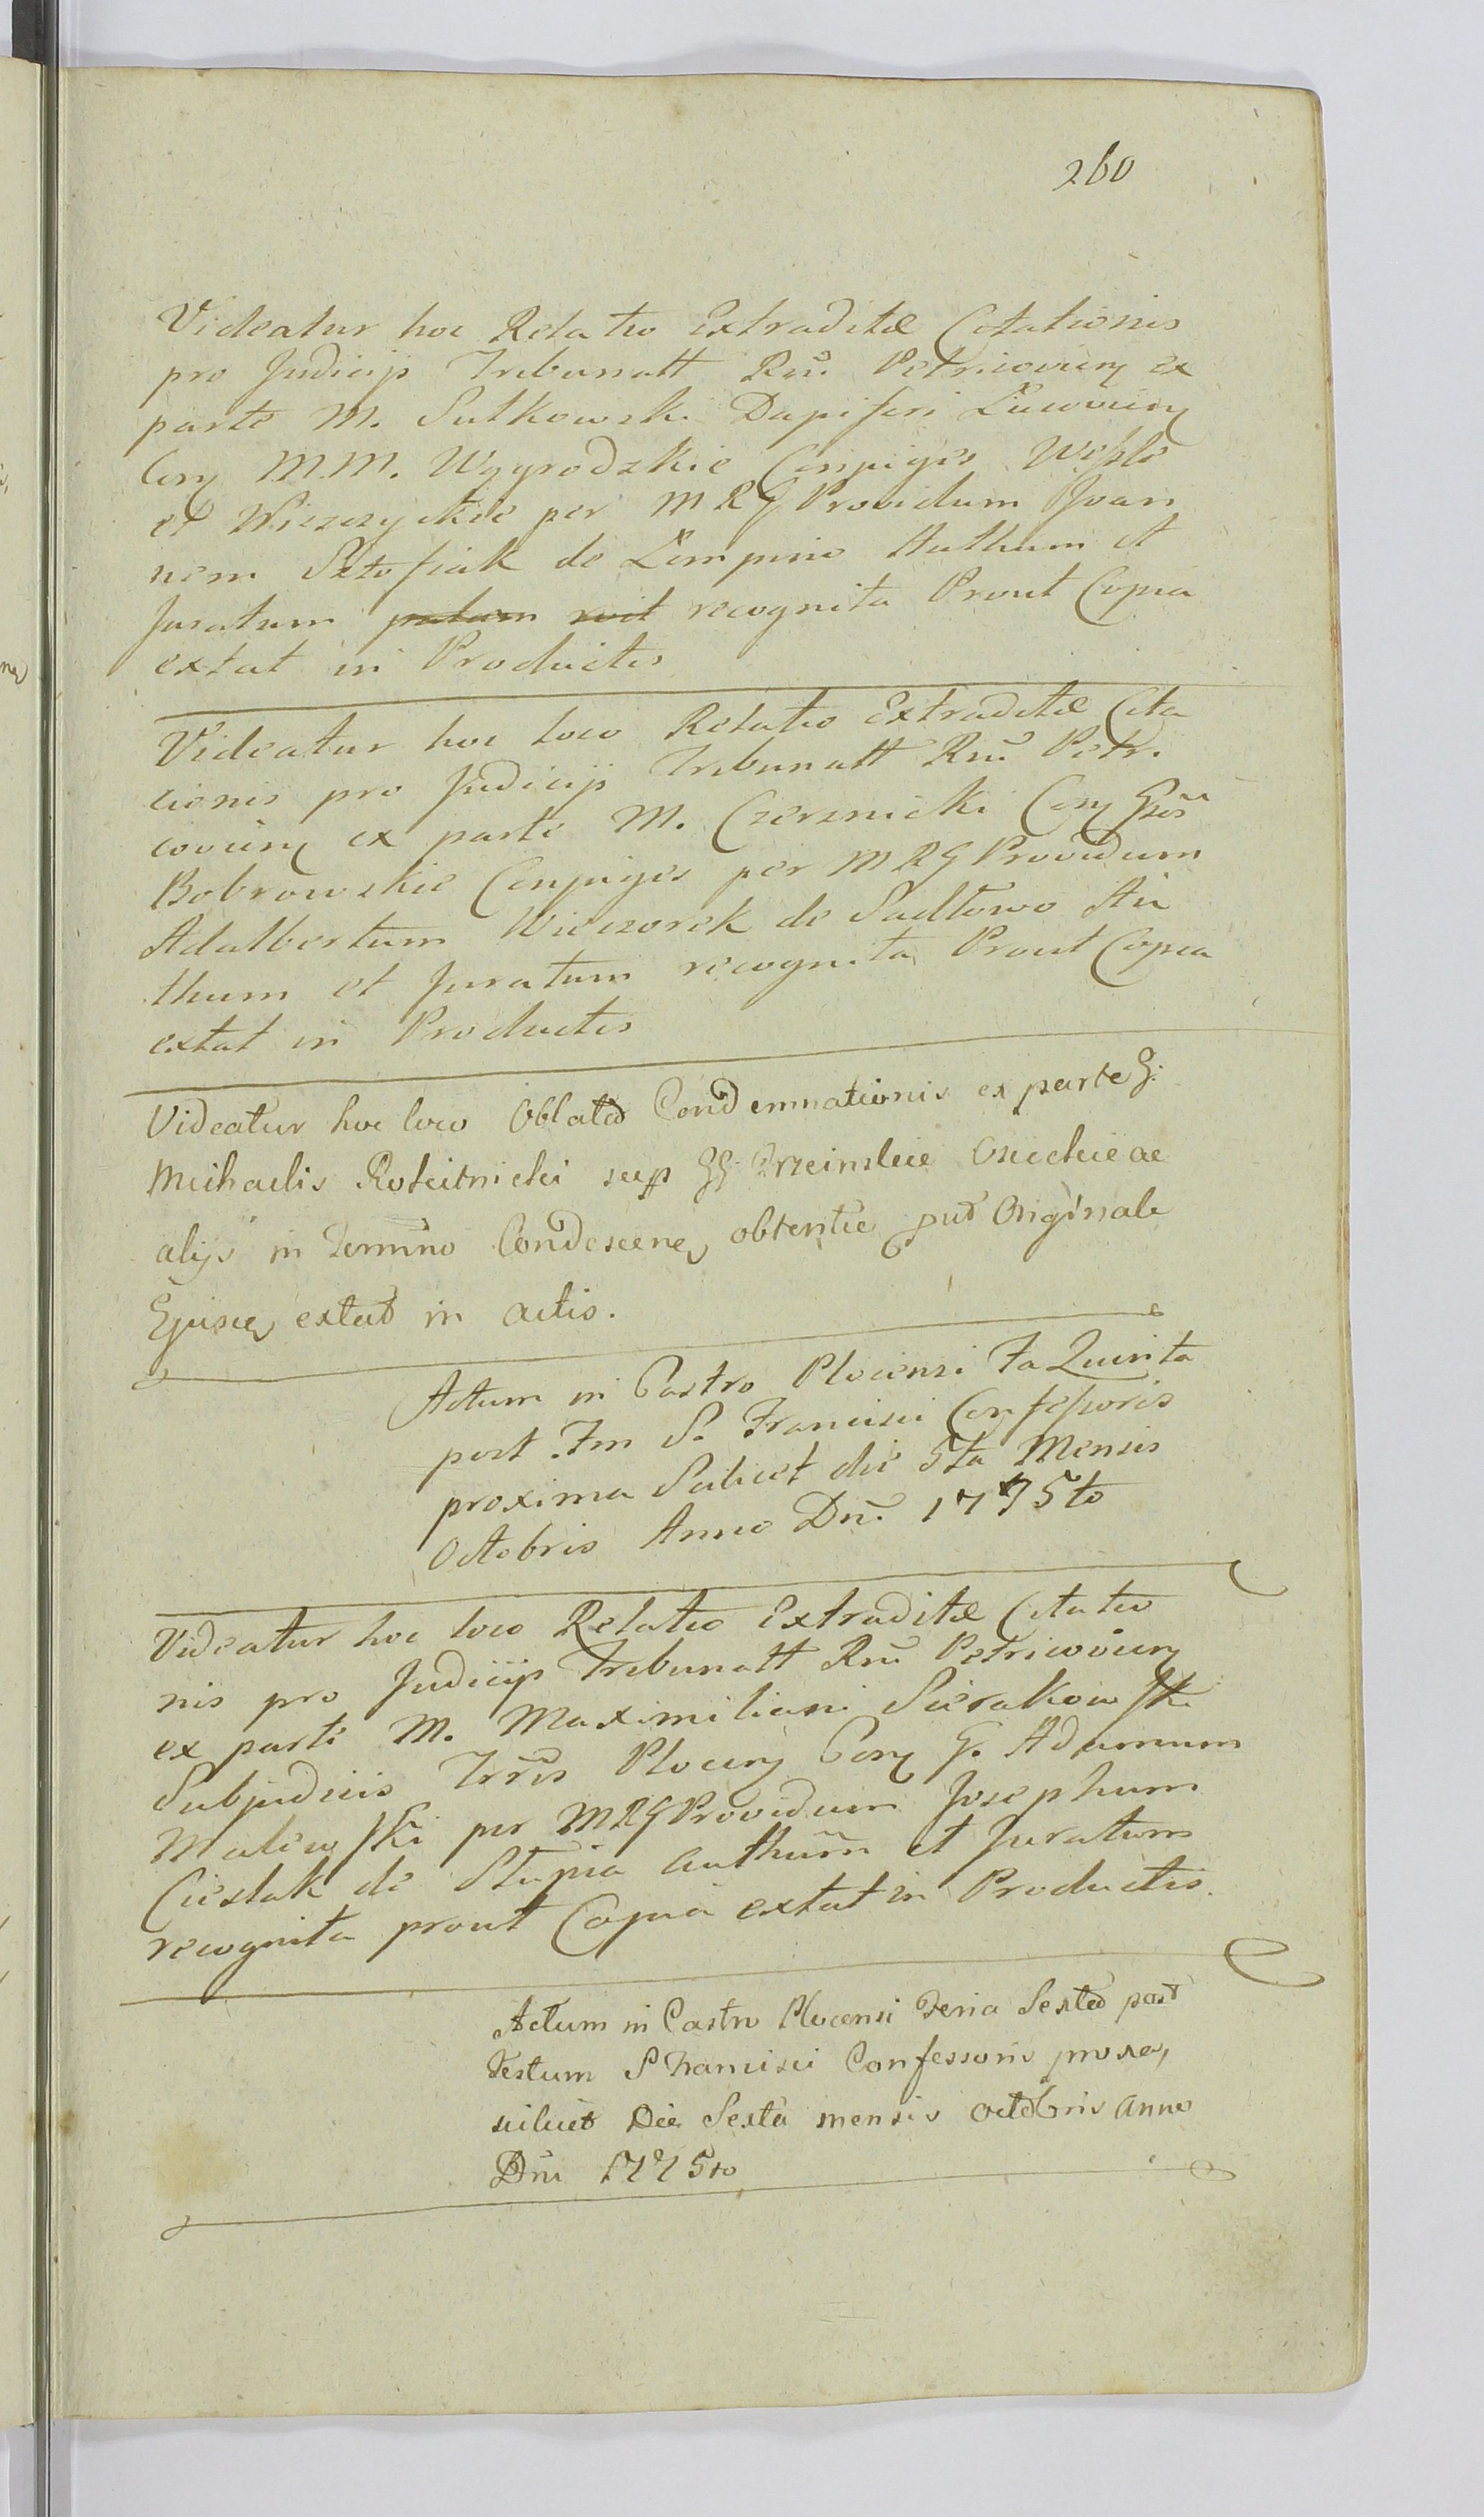 260
Videatur hoc Relatio Extraditæ Citationis
pro Judicijs Tribunatt Rnī Petricovien ex
parte M. Sutkowski Dapiferi
Con M.M. Wygrodzkie Conjuges Weßle
et per MRG Providum Joan
nem de Authum et
Juratum recognita Prout Copia
extat in Productis
Videatur hoc loco Relatio Extraditæ Cita
cionis pro Judicijs Tribunatt Rnī Petri
covien ex parte M. Czersnicki Con Gsos
Bobrowskie Conjuges per MRG Providum
Adalbertum Wieczorek de Sadłowo Au
thum et Juratum recognita Prout Copia
extat in Productis
Videatur hoc loco Oblata Condemnationis ex parte G.
Michaelis Rościtnicki sup GG. ac
alijs in Termino Condescen obtentæ put Originale
Ejusq extat in actis.
Actum in Castro Plocensi Fa Quinta
post Fm S. Francisci Confeßoris
proxima Scilicet die 5ta Mensis
Octobris Anno Dnī 1775to
Videatur hoc loco Relatio Extraditæ Citatio
nis pro Judicijs Tribunatt Rnī Petricovien
ex parte M. Maximiliani Sierakowski
Subjudicis Trris Plocen Con G. Adamum
Malewski per MRG Providum Josephum
Cieslak de Słupia Authum et Juratum
recognita prout Copia extat in Productis.
Actum in Castro Plocensi Feria Sexta post
Festum S Francisci Confessoris proxa,
scilicet Die Sexta mensis Octobris Anno
Dni 1775to